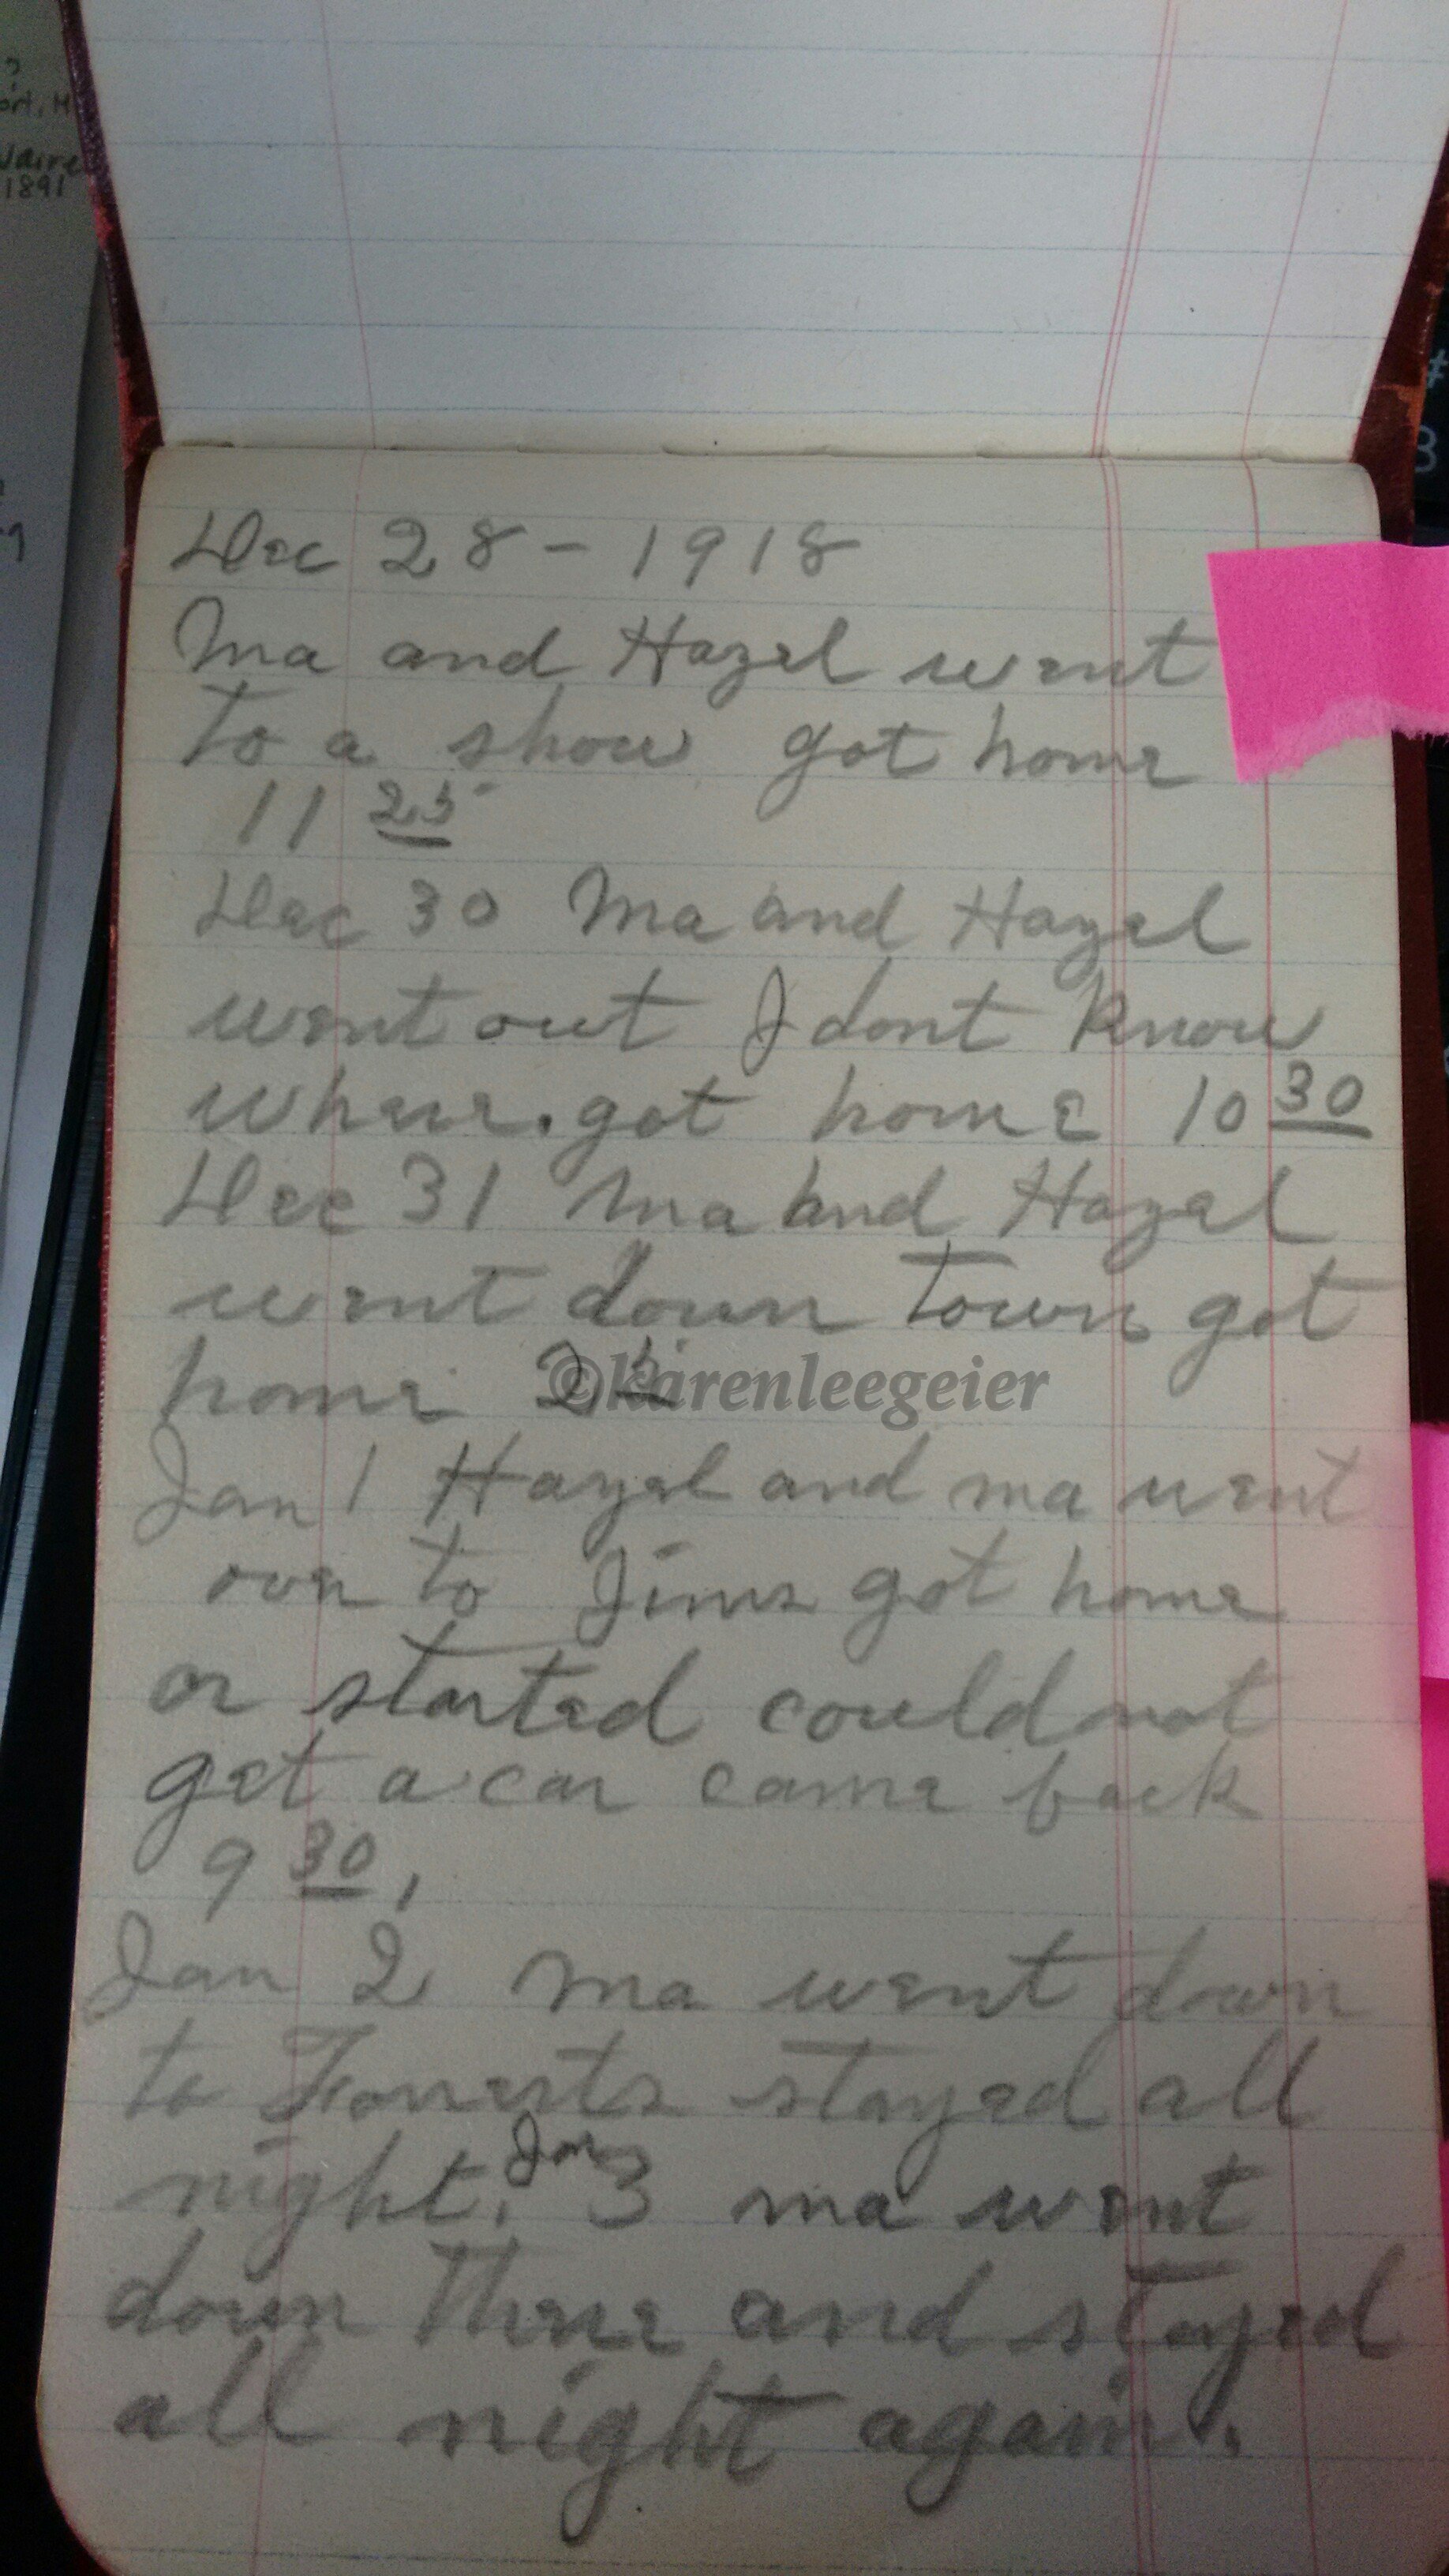 ?
ort, M
1891
Dec 28 - 1918
Ma and Hazel went
to a show got home
11 25
Dec 30 Ma and Hazel
went out I dont know
where. got home 10 30
Dec 31 Ma and Hazel
went down town got
home 2
©karenleegeier
Jan 1 Hazel and ma went
over to Jims got home
or started could not
get a car came back
9 30,
Jan 2 ma went down
to stayed all
night. Jan 3 ma went
down there and stayed
all night again.
#
3